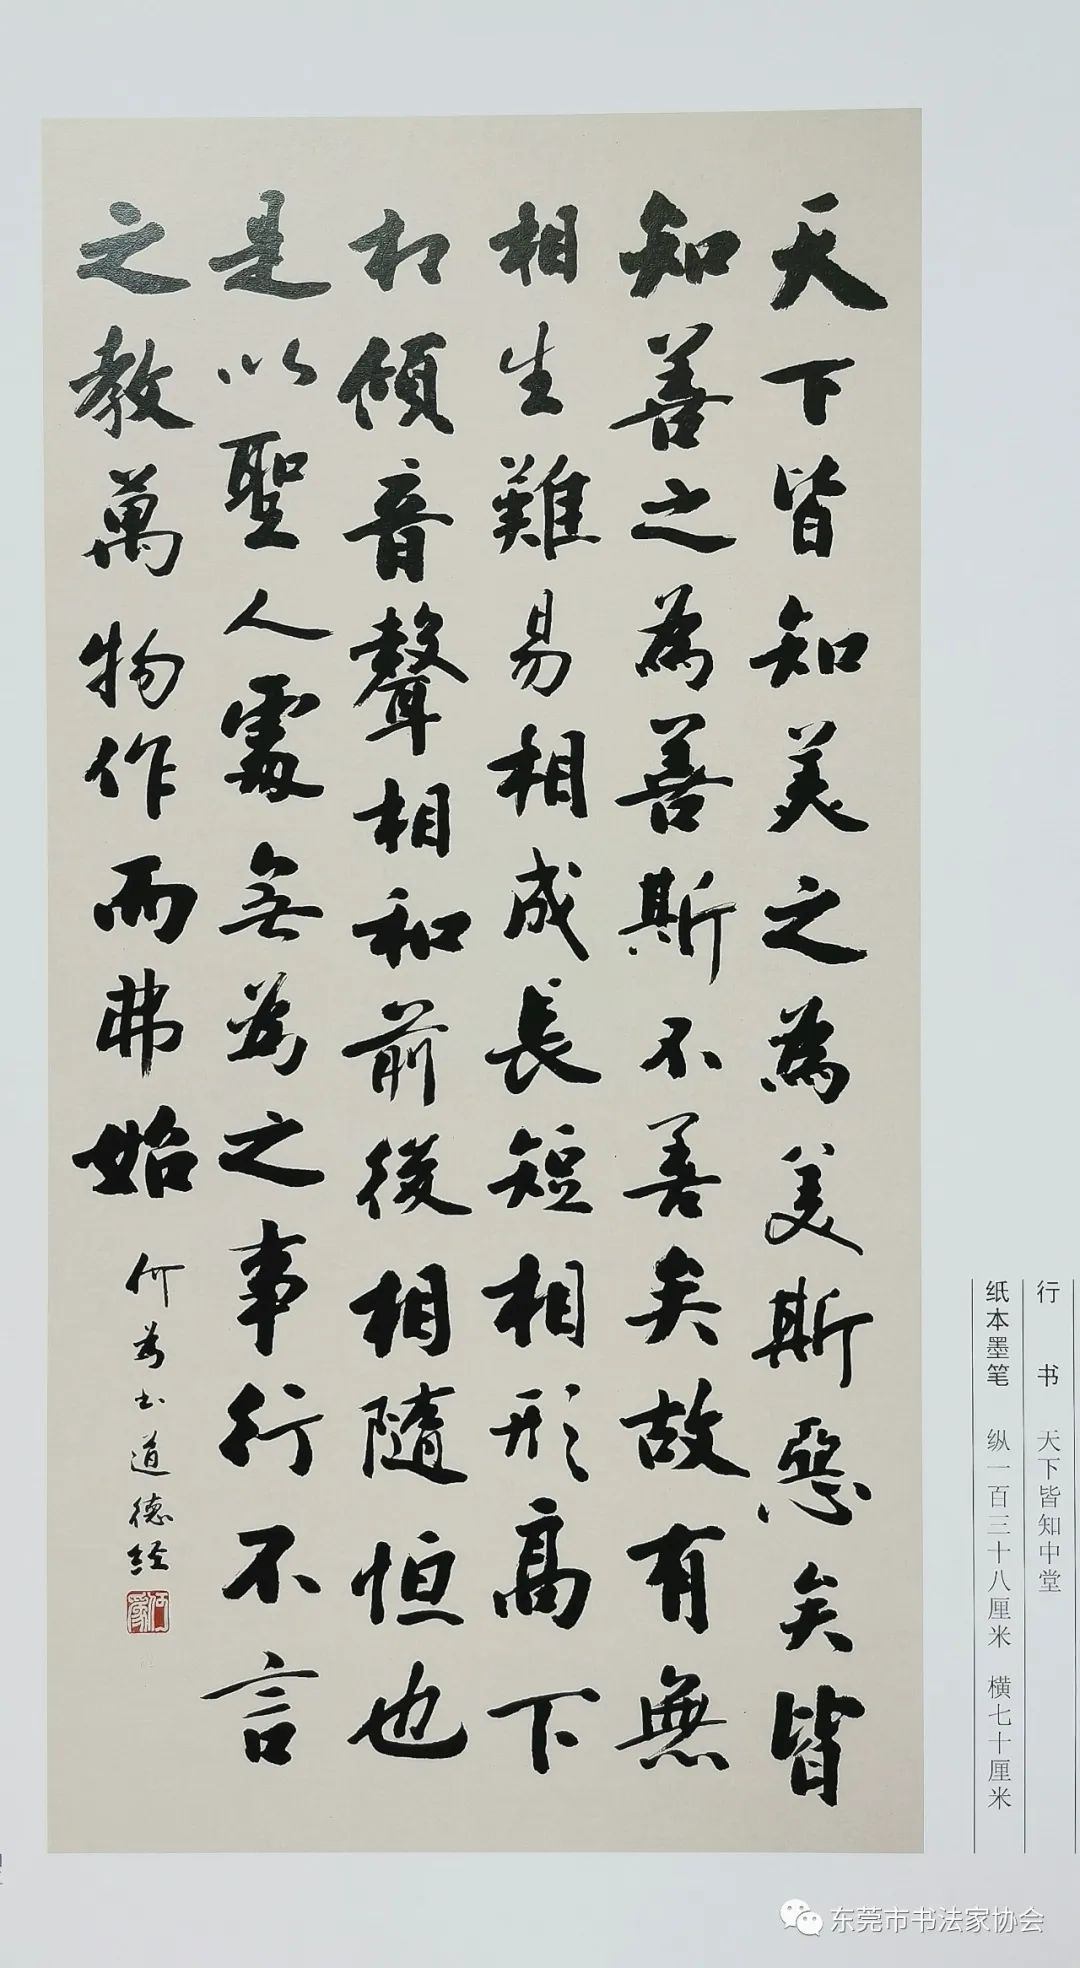 天下皆知美之為美斯惡矣皆
知善之為善斯不善矣故有無
相生難易相成長短相形高下
相傾音聲相和前後相隨恒也
是以聖人處無為之事行不言
之教萬物作而弗始
何为书道德经
何為
行 书 天下皆知中堂
纸本墨笔 纵一百三十八厘米 横七十厘米
东莞市书法家协会